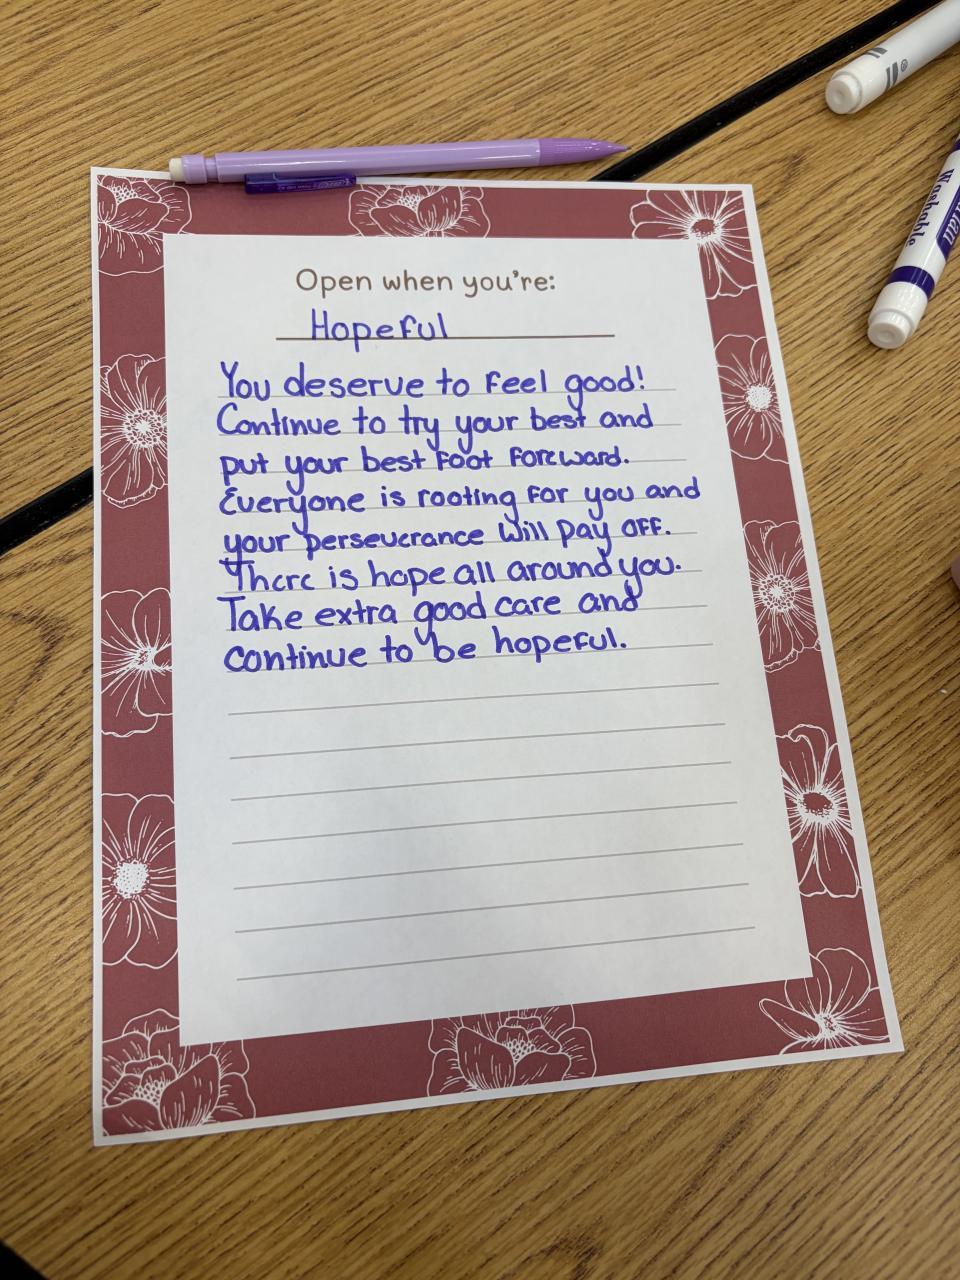 Open when you're:
Hopeful
You deserve to feel good!
Continue to try your best and
put your best foot foreward.
Everyone is rooting for you and
your perseverance will pay off.
There is hope all around you.
Take extra good care and
continue to be hopeful.
Washable